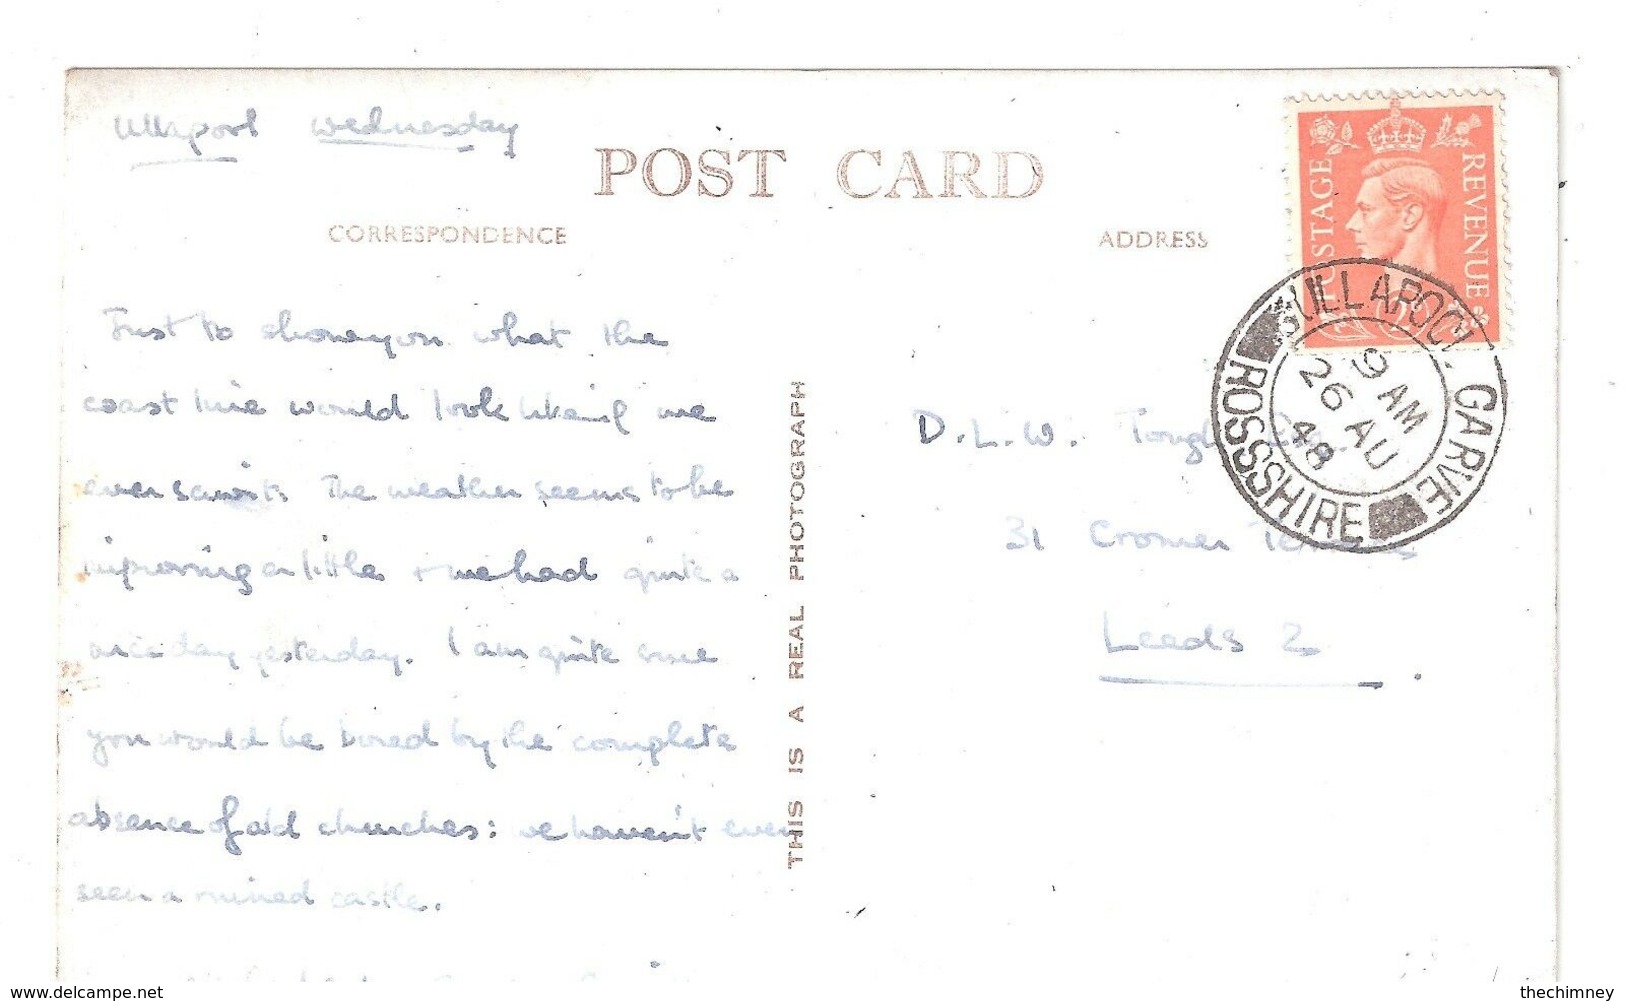 Ullapool Wednesday
POST CARD
CORRESPONDENCE
ADDRESS
POSTAGE REVENUE
ULLAPOOL GARVE
ROSSSHIRE
9 AM
26 AU
48
Just to show you what the
coast line would look like if we
ever saw it. The weather seems to be
improving a little + we had quite a
nice day yesterday. I am quite sure
you would be bored by the complete
absence of old churches: we haven't even
seen a ruined castle.
THIS IS A REAL PHOTOGRAPH
D.L.W.
31 Cromer Terrace
Leeds 2
delcampe.net
thechimney